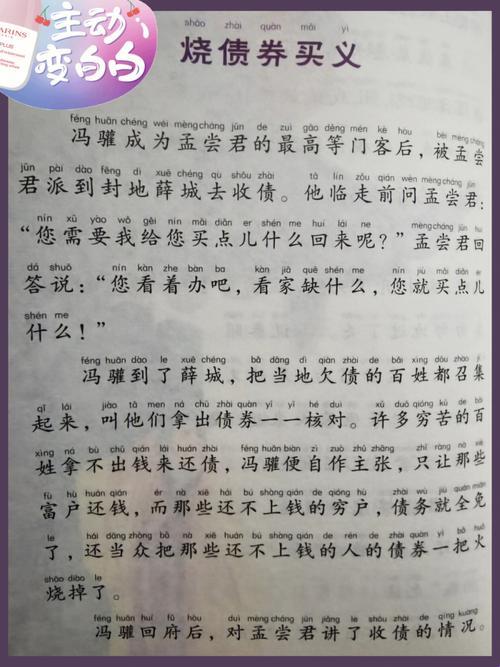 ARINS
PLUS
主动
变白白
shāo zhài quàn mǎi yì
烧债券买义
féng huān chéng wéi mèng cháng jūn de zuì gāo děng mén kè hòu bèi mèng cháng
冯驩成为孟尝君的最高等门客后，被孟尝
jūn pài dào fēng dì xuē chéng qù shōu zhài tā lín zǒu qián wèn mèng cháng jūn
君派到封地薛城去收债。他临走前问孟尝君：
nín xū yào wǒ gěi nín mǎi diǎn er shén me huí lái ne mèng cháng jūn huí
“您需要我给您买点儿什么回来呢？”孟尝君回
dá shuō nín kàn zhe bàn ba kàn jiā quē shén me nín jiù mǎi diǎn er
答说：“您看着办吧，看家缺什么，您就买点儿
shén me
什么！”
féng huān dào le xuē chéng bǎ dāng dì qiàn zhài de bǎi xìng dōu zhào jí
冯驩到了薛城，把当地欠债的百姓都召集
qǐ lái jiào tā men ná chū zhài quàn yī yī hé duì xǔ duō qióng kǔ de bǎi
起来，叫他们拿出债券一一核对。许多穷苦的百
xìng ná bù chū qián lái huán zhài féng huān biàn zì zuò zhǔ zhāng zhǐ ràng nà xiē
姓拿不出钱来还债，冯驩便自作主张，只让那些
fù hù huán qián ér nà xiē huán bú shàng qián de qióng hù zhài wù jiù quán miǎn
富户还钱，而那些还不上钱的穷户，债务就全免
le hái dāng zhòng bǎ nà xiē huán bú shàng qián de rén de zhài quàn yì bǎ huǒ
了，还当众把那些还不上钱的人的债券一把火
shāo diào le
烧掉了。
féng huān huí fǔ hòu duì mèng cháng jūn jiǎng le shōu zhài de qíng kuàng
冯驩回府后，对孟尝君讲了收债的情况。